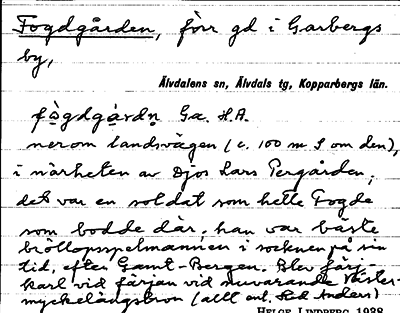 Fogdgården, förr gd i Garbergs
by,
Älvdalens sn, Älvdals tg, Kopparbergs län.
fògdgàrdn Ga. H.A.
nerom landsvägen (c. 100 m S om den),
i närheten av Djos Lars Pergården;
det var en soldat som hette Fogde
som bodde där; han var bäste
bröllopsspelmannen i socknen på sin
tid, efter Gamt-Bergen. Blev färj-
karl vid färjan vid nuvarande Väster-
myckelängsbron (allt enl. Anders)
HELGE LINDBERG 1938